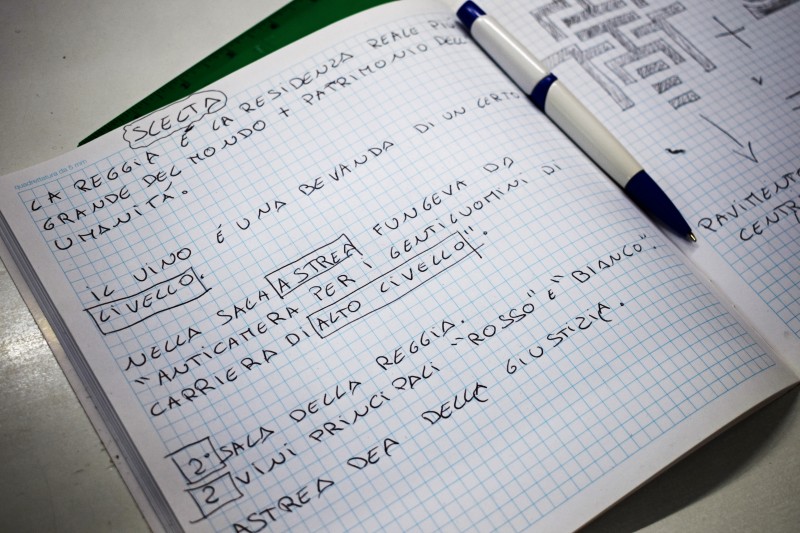 quadrettatura da 5 mm
SCELTA
LA REGGIA É LA RESIDENZA REALE PIÙ
GRANDE DEL MONDO + PATRIMONIO DELL
UMANITÁ.
IL VINO É UNA BEVANDA DI UN CERTO
LIVELLO.
NELLA SALA ASTREA FUNGEVA DA
"ANTICAMERA PER I GENTILUOMINI DI
CARRIERA DI ALTO LIVELLO".
2° SALA DELLA REGGIA.
2 VINI PRINCIPALI "ROSSO" E "BIANCO".
ASTREA DEA DELLA GIUSTIZIA.
PAVIMENTO
CENTR